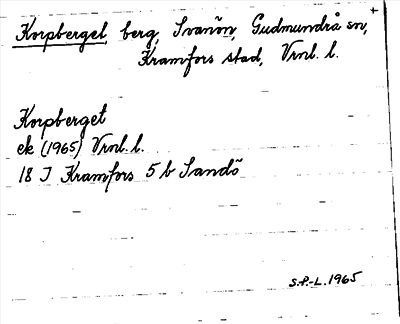 Korpberget berg, Svanön, Gudmundrå sn,
Kramfors stad, Vrnl. l.
Korpberget
ek (1965) Vrnl. l.
18 J Kramfors 5 b Sandö
S.P.-L. 1965